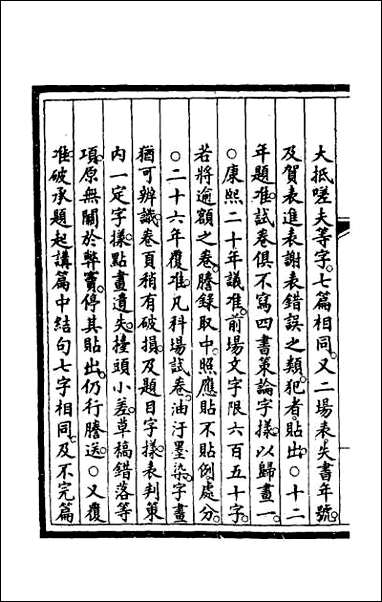 大抵嗟夫等字。七篇相同。又二場表失書年號。
及賀表進表謝表錯誤之類。犯者貼出。○十二
年題准。試卷俱不寫四書策論字樣。以歸畫一。
○康熙二十年議准。前場文字限六百五十字。
若將逾額之卷。謄錄取中。照應貼不貼例。處分。
○二十六年覆准。凡科場試卷。油汙墨染。字畫
猶可辨識。卷頁稍有破損。及題目字樣。表判策
內一定字樣。點畫遺失。擡頭小差。草稿錯落等
項。原無關於弊竇。停其貼出。仍行謄送。○又覆
准。破承題起講篇中結句七字相同。及不完篇